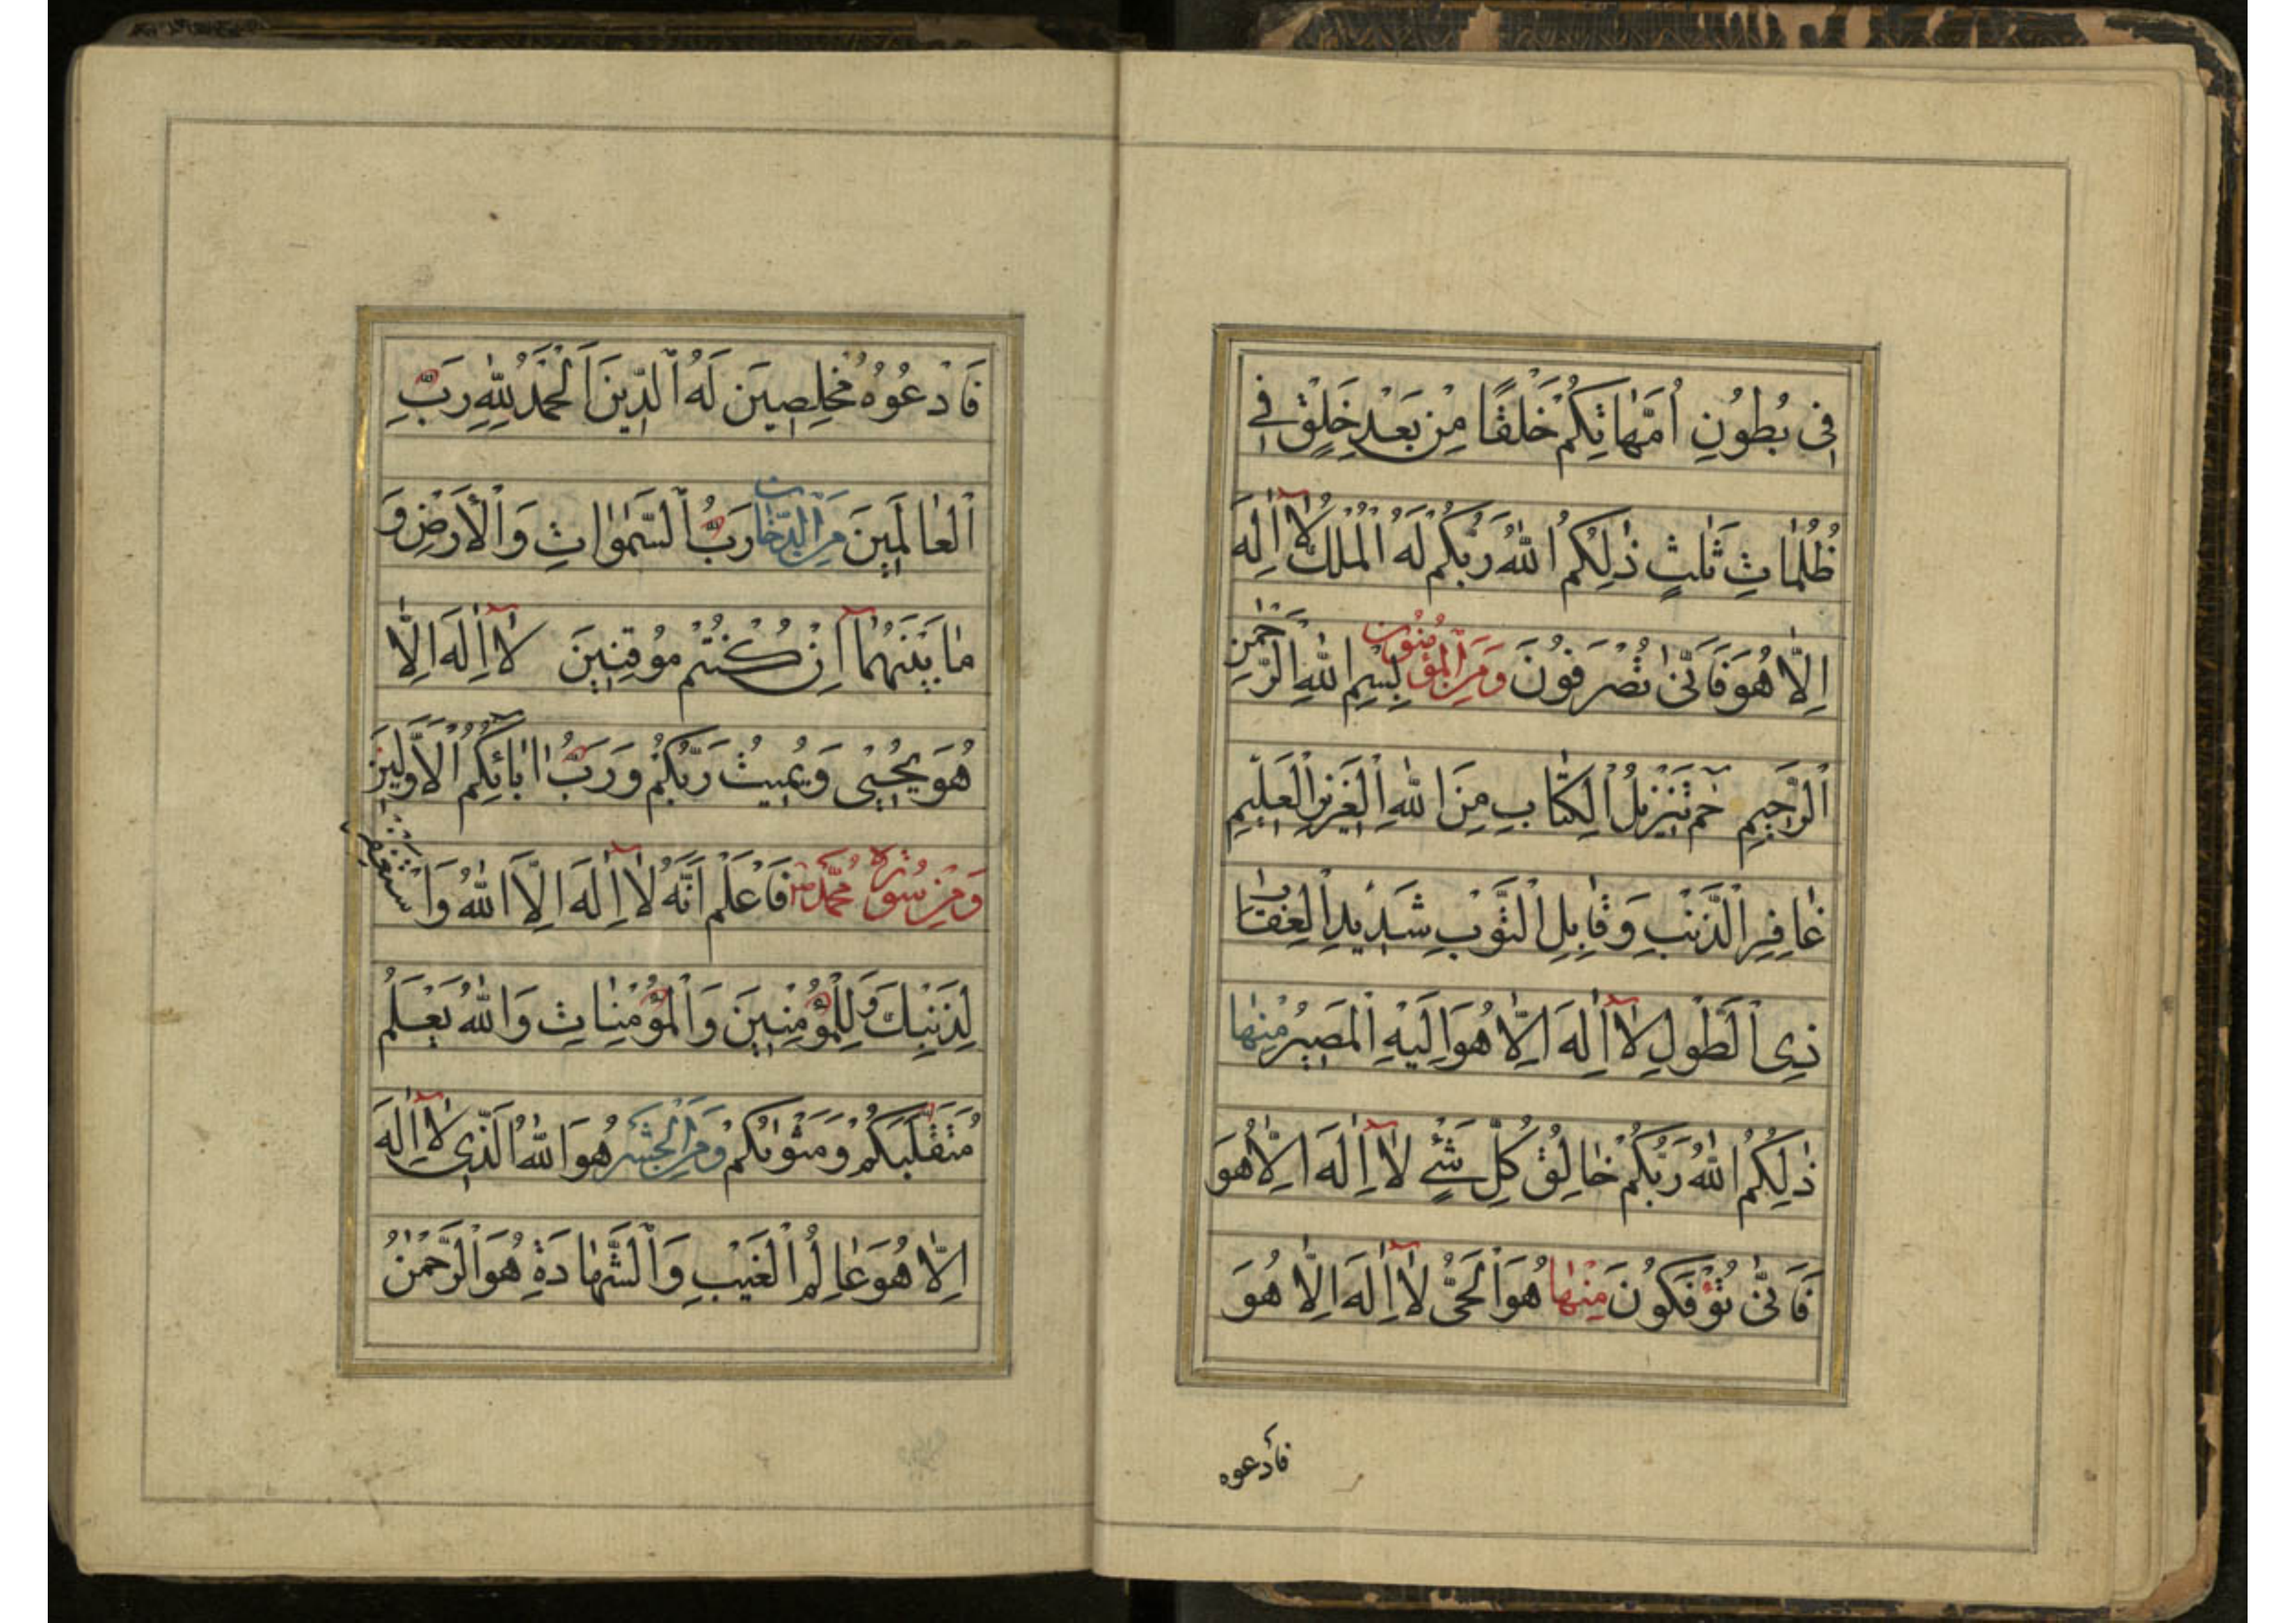 فِى بُطُونِ اُمَّهَاتِكُمْ خَلْقًا مِنْ بَعْدِ خَلْقٍ فِى
ظُلُمَاتٍ ثَلٰثٍ ذٰلِكُمُ اللّٰهُ رَبُّكُمْ لَهُ الْمُلْكُ لَا اِلٰهَ
اِلَّا هُوَ فَاَنّٰى تُصْرَفُونَ وَمِنَ الْمُؤْمِنُونَ بِسْمِ اللّٰهِ الرَّحْمٰنِ
الرَّحِيمِ حٰمٓ تَنْزِيلُ الْكِتَابِ مِنَ اللّٰهِ الْعَزِيزِ الْعَلِيمِ
غَافِرِ الذَّنْبِ وَقَابِلِ التَّوْبِ شَدِيدِ الْعِقَابِ
ذِى الطَّوْلِ لَا اِلٰهَ اِلَّا هُوَ اِلَيْهِ الْمَصِيرُ مِنْهَا
ذٰلِكُمُ اللّٰهُ رَبُّكُمْ خَالِقُ كُلِّ شَىْءٍ لَا اِلٰهَ اِلَّا هُوَ
فَاَنّٰى تُؤْفَكُونَ مِنْهَا هُوَ الْحَىُّ لَا اِلٰهَ اِلَّا هُوَ
فَادعوه
فَادْعُوهُ مُخْلِصِينَ لَهُ الدِّينَ اَلْحَمْدُ لِلّٰهِ رَبِّ
الْعَالَمِينَ مِنَ الدُّخَانِ رَبُّ السَّمٰوَاتِ وَالْاَرْضِ وَ
مَا بَيْنَهُمَا اِنْ كُنْتُمْ مُوقِنِينَ لَا اِلٰهَ اِلَّا
هُوَ يُحْيِى وَيُمِيتُ رَبُّكُمْ وَرَبُّ اٰبَائِكُمُ الْاَوَّلِينَ
وَمِنْ سُورَةِ مُحَمَّدٍ فَاعْلَمْ اَنَّهُ لَا اِلٰهَ اِلَّا اللّٰهُ وَاسْتَغْفِرْ
لِذَنْبِكَ وَلِلْمُؤْمِنِينَ وَالْمُؤْمِنَاتِ وَاللّٰهُ يَعْلَمُ
مُتَقَلَّبَكُمْ وَمَثْوٰىكُمْ وَمِنَ الْحَشْرِ هُوَ اللّٰهُ الَّذِى لَا اِلٰهَ
اِلَّا هُوَ عَالِمُ الْغَيْبِ وَالشَّهَادَةِ هُوَ الرَّحْمٰنُ